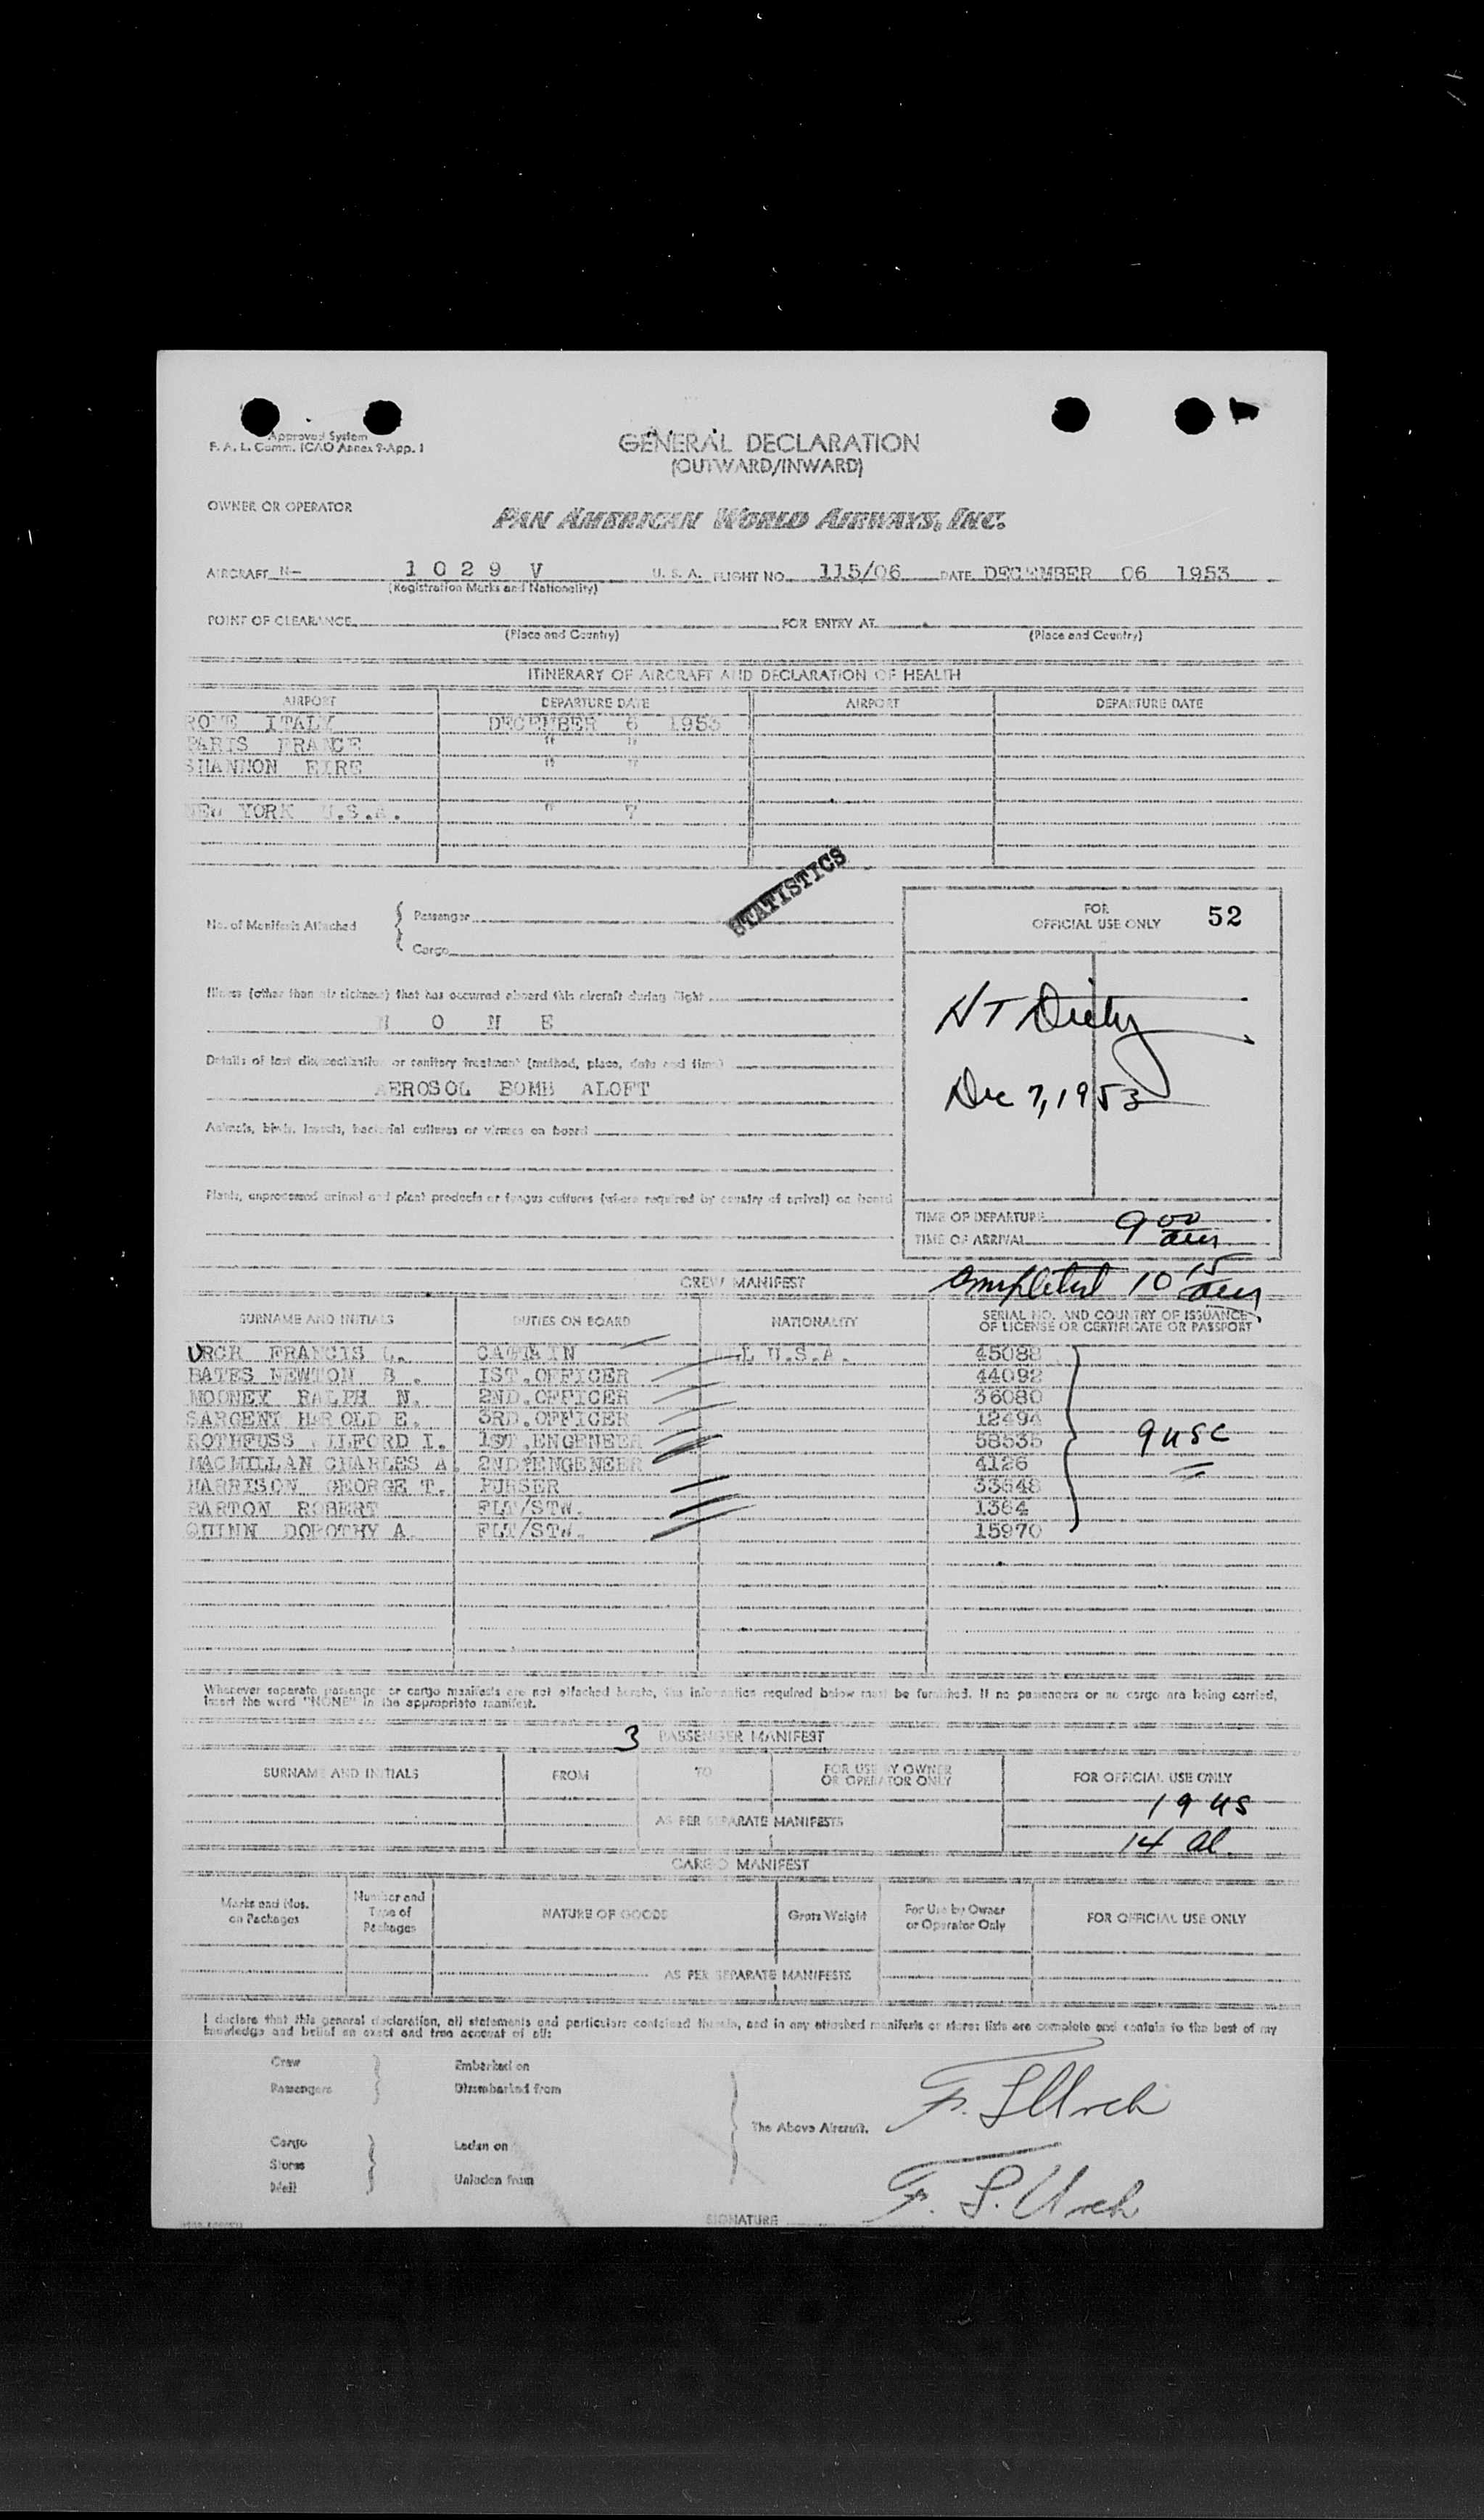 Approved System
F. A. L. Comm. ICAO Annex 9-App. 1
GENERAL DECLARATION
(OUTWARD/INWARD)
OWNER OR OPERATOR
PAN AMERICAN WORLD AIRWAYS, INC.
AIRCRAFT N- 1 0 2 9 V U. S. A. FLIGHT NO. 115/06 DATE DECEMBER 06 1953
(Registration Marks and Nationality)
POINT OF CLEARANCE FOR ENTRY AT
(Place and Country) (Place and Country)
ITINERARY OF AIRCRAFT AND DECLARATION OF HEALTH
AIRPORT DEPARTURE DATE AIRPORT DEPARTURE DATE
ROME ITALY DECEMBER 6 1953
PARIS FRANCE " "
SHANNON EIRE " "
NEW YORK U.S.A. " 7
STATISTICS
FOR
OFFICIAL USE ONLY 52
No. of Manifests Attached { Passenger
Cargo
Illness (other than air sickness) that has occurred aboard this aircraft during flight
N O N E
Details of last disinsectization or sanitary treatment (method, place, date and time)
AEROSOL BOMB ALOFT
Dec 7, 1953
Animals, birds, insects, bacterial cultures or viruses on board
Plants, unprocessed animal and plant products or fungus cultures (where required by country of arrival) on board
TIME OF DEPARTURE
TIME OF ARRIVAL 9 00 am
Completed 10 15 am
CREW MANIFEST
SURNAME AND INITIALS DUTIES ON BOARD NATIONALITY SERIAL NO. AND COUNTRY OF ISSUANCE
OF LICENSE OR CERTIFICATE OR PASSPORT
URCH FRANCIS L. CAPTAIN ALL U.S.A. 45088
BATES NEWTON B. 1ST.OFFICER 44092
MOONEY RALPH N. 2ND.OFFICER 36080
SARGENT HAROLD E. 3RD.OFFICER 12494
ROTHFUSS ILFORD I. 1ST.ENGENEER 58535
MACMILLAN CHARLES A. 2ND.ENGENEER 4126
HARRISON GEORGE T. PURSER 33648
BARTON ROBERT FLT/STW. 1364
QUINN DOROTHY A. FLT/STW. 15970
9 USC
Whenever separate passenger or cargo manifests are not attached hereto, the information required below must be furnished. If no passengers or no cargo are being carried,
insert the word "NONE" in the appropriate manifest.
3 PASSENGER MANIFEST
SURNAME AND INITIALS FROM TO FOR USE BY OWNER
OR OPERATOR ONLY FOR OFFICIAL USE ONLY
19 US
AS PER SEPARATE MANIFESTS
14 Al.
CARGO MANIFEST
Marks and Nos.
on Packages Number and
Type of
Packages NATURE OF GOODS Gross Weight For Use by Owner
or Operator Only FOR OFFICIAL USE ONLY
AS PER SEPARATE MANIFESTS
I declare that this general declaration, all statements and particulars contained therein, and in any attached manifests or stores lists are complete and contain to the best of my
knowledge and belief an exact and true account of all:
Crew Embarked on
Passengers Disembarked from
The Above Aircraft.
Cargo Laden on
Stores
Mail Unladen from
F. S. Urch
F. S. Urch
SIGNATURE